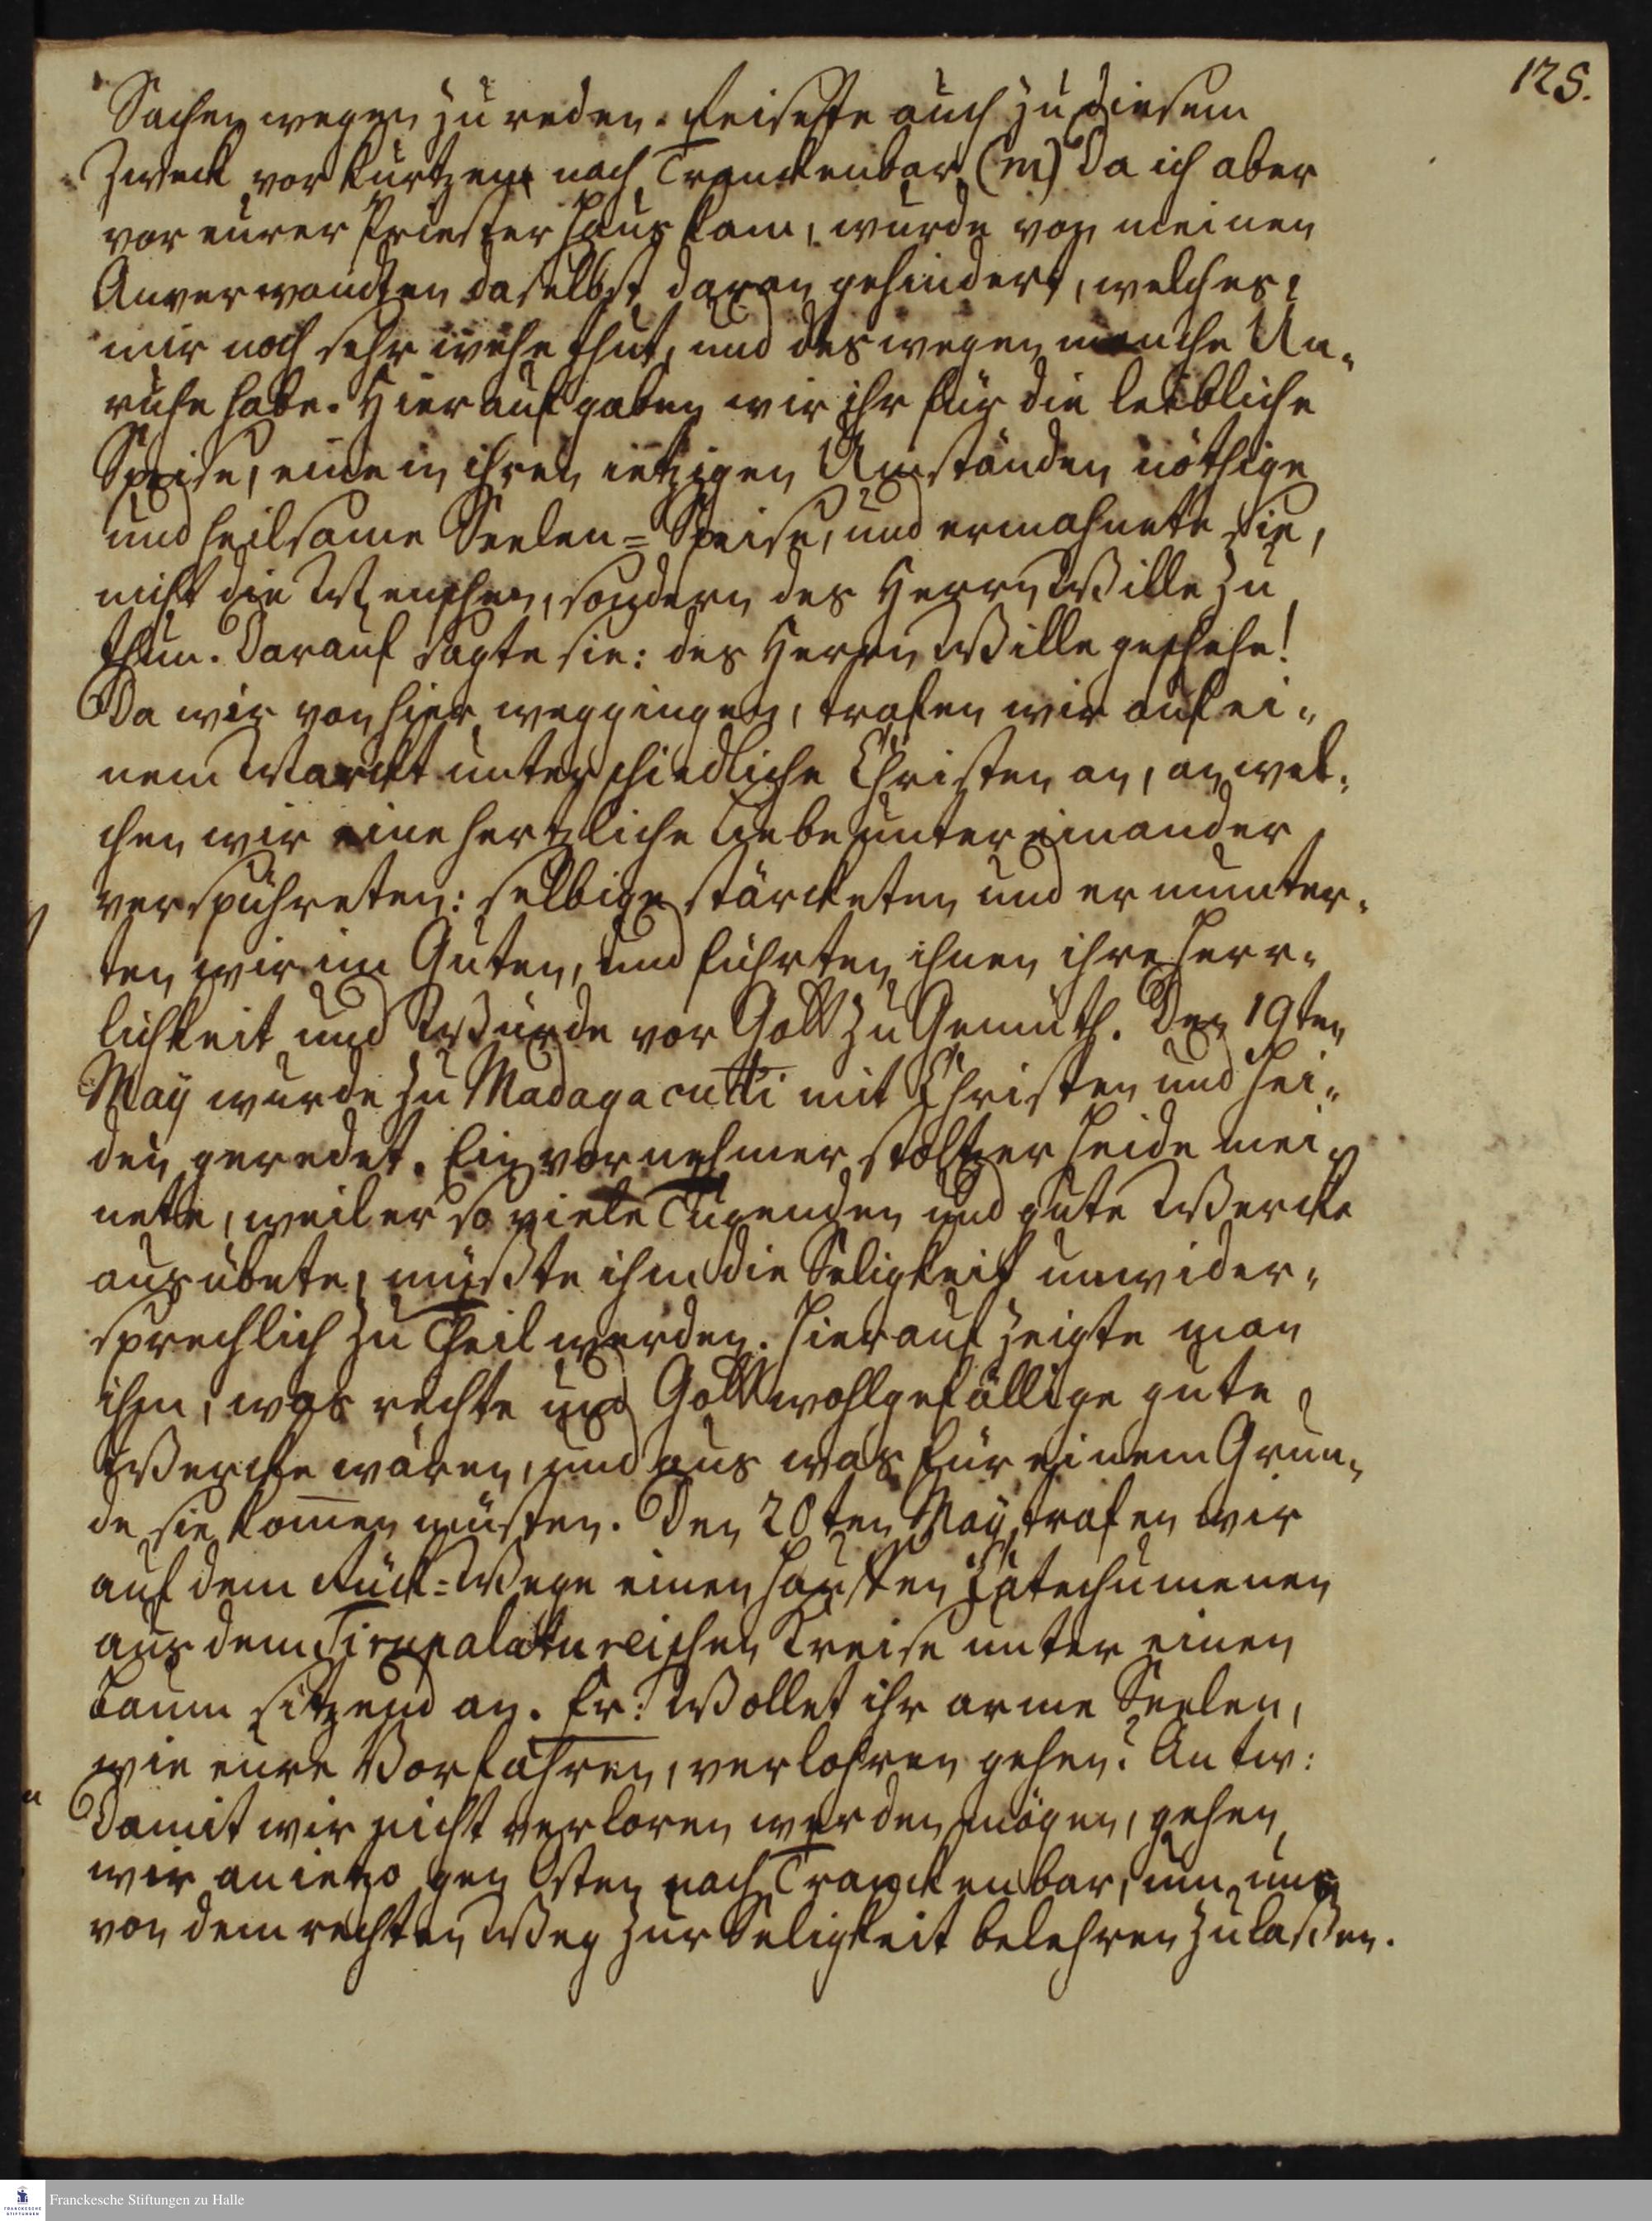 125.
Sachen wegen zu reden. Reisete auch zu diesem
Zweck vor kurtzem nach Tranckenbar (m) Da ich aber
vor eurer Priester Haus kam, wurde von meinen
Anverwandten daselbst daran gehindert, welches
mir noch sehr wehe thut, und deswegen manche Un-
ruhe habe. Hierauf gaben wir ihr für die leibliche
Speise, eine in ihren ietzigen Umständen nöthige
und heilsame Seelen-Speise, und ermahnete sie,
nicht die Menschen, sondern des Herrn Wille zu
thun. Darauf sagte sie: des Herrn Wille geschehe!
Da wir von hier weggingen, trafen wir auf ei-
nem Marckt unterschiedliche Christen an, an wel-
chen wir eine hertzliche Liebe unter einander
verspühreten: selbige stärcketen und ermunter-
ten wir im Guten, und führten ihnen ihre Herr-
lichkeit und Würde vor Gott zu Gemüth. Den 19ten
Maÿ wurde zu Madagacutti mit Christen und Hei-
den geredet. Ein vornehmer stoltzer Heide mei-
nete, weil er so viele Tugenden und gute Wercke
ausübete, müßte ihm die Seligkeit unwider-
sprechlich zu Theil werden. Hierauf zeigte man
ihm, was rechte und Gott wohlgefällige gute
Wercke wären, und aus was für einem Grun-
de sie kom̅en müsten. Den 20ten Maÿ trafen wir
auf dem Rück-Wege einen Hauffen Catechumenen
aus dem Tirupalatureischen Creise unter einen
Baum sitzend an. Fr: Wollet ihr arme Seelen,
wie eure Vorfahren, verlohren gehen? Antw:
Damit wir nicht verloren werden mögen, gehen
wir anietzo gen Osten nach Tranckenbar, um uns
von dem rechten Weg zur Seligkeit belehren zu laßen.
Franckesche Stiftungen zu Halle
FRANCKESCHE
STIFTUNGEN